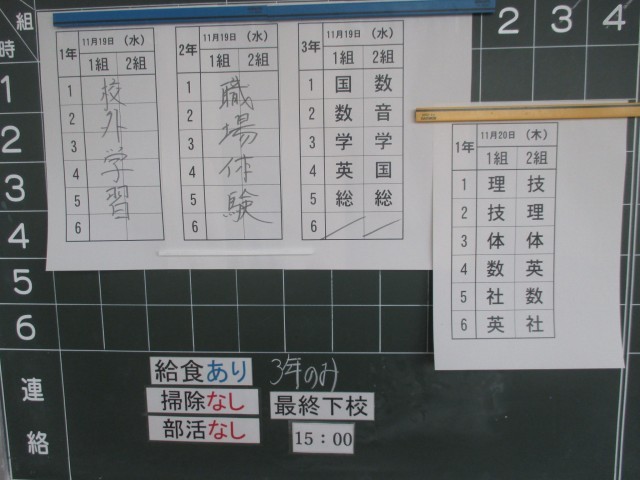 組
2 3 4
時
1
2
3
4
5
6
連絡
1年 11月19日 (水)
1組 2組
1
2
3
4
5
6
校外学習
2年 11月19日 (水)
1組 2組
1
2
3
4
5
6
職場体験
3年 11月19日 (水)
1組 2組
1 国 数
2 数 音
3 学 学
4 英 国
5 総 総
6
1年 11月20日 (木)
1組 2組
1 理 技
2 技 理
3 体 体
4 数 英
5 社 数
6 英 社
給食あり 3年のみ
掃除なし 最終下校
部活なし 15:00